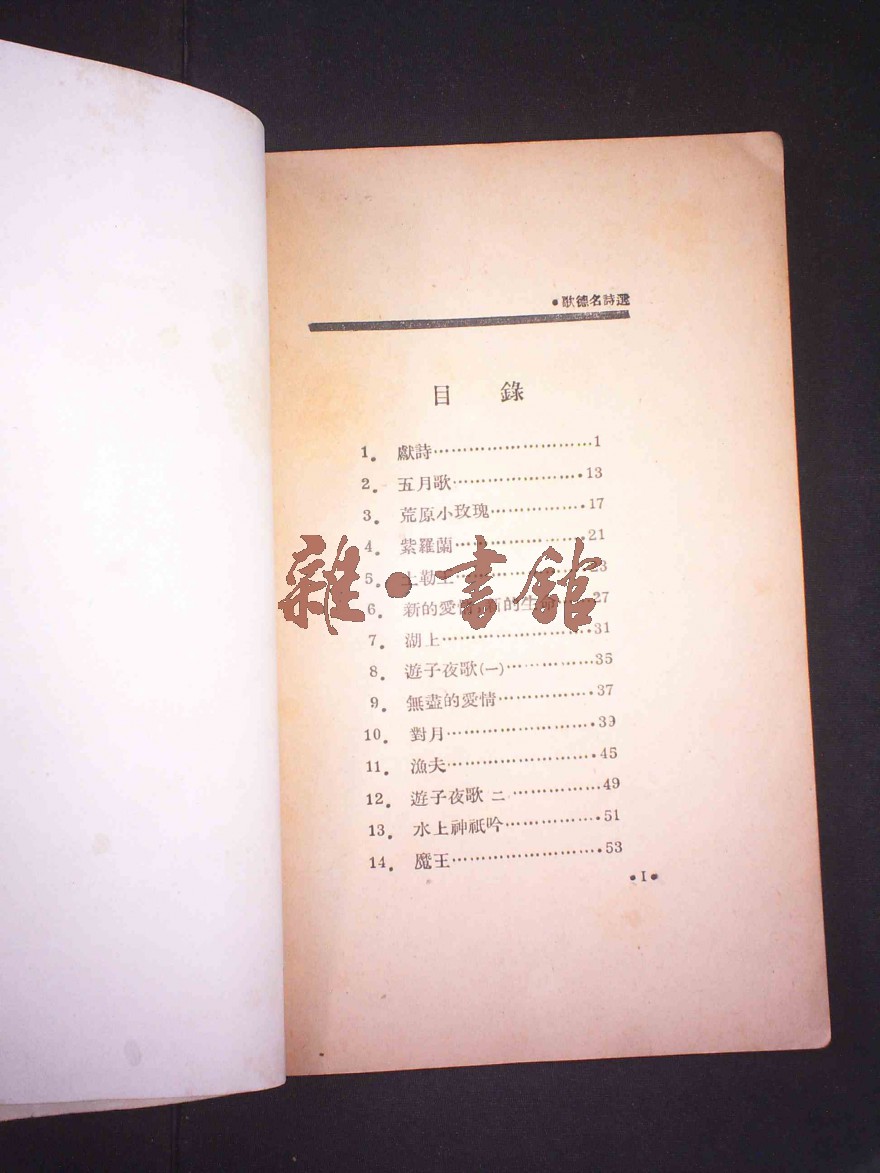 •歌德名詩選
目 錄
1. 獻詩…………………………1
2. 五月歌………………………13
3. 荒原小玫瑰………………17
4. 紫羅蘭……………………21
5. 土勒王……………………3
6. 新的愛情 新的生命……27
7. 湖上………………………31
8. 遊子夜歌(一)……………35
9. 無盡的愛情………………37
10. 對月………………………39
11. 漁夫………………………45
12. 遊子夜歌 二………………49
13. 水上神祇吟………………51
14. 魔王………………………53
•I•
雜·書館